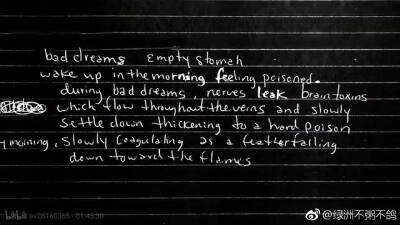 bad dreams empty stomah
wake up in the morning feeling poisoned.
during bad dreams, nerves leak brain toxins
which flow throughout the veins and slowly
settle down thickening to a hard poison
y morning, slowly coagulating as a feather falling
down toward the flames
bilibili av28160365 - 01:45:50
@绿洲不粥不鸽